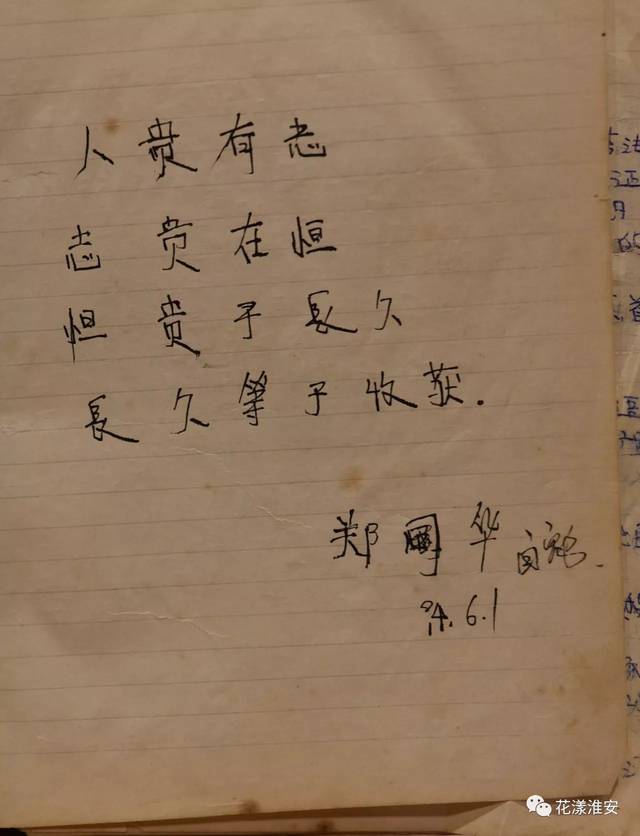 人贵有志
志贵在恒
恒贵于長久
長久等于收获.
郑国华自勉.
74.6.1
花漾淮安